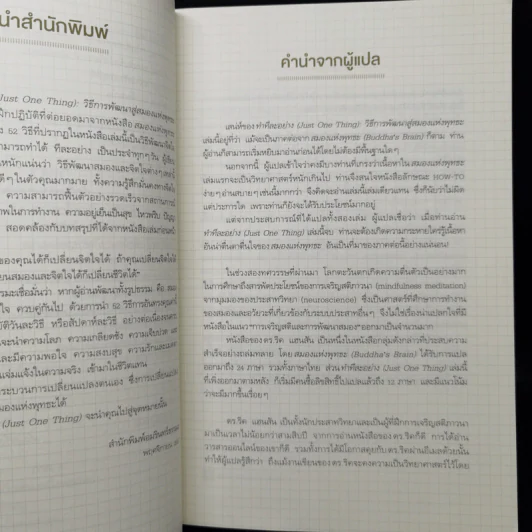 นำสำนักพิมพ์
(Just One Thing): วิธีการพัฒนาสู่สมองแห่งพุทธะ
ฝึกปฏิบัติที่ต่อยอดมาจากหนังสือ สมองแห่งพุทธะ
52 วิธีที่ปรากฏในหนังสือเล่มนี้เป็นวิธีพัฒนาจิตใจ
ามารถทำได้ ทีละอย่าง เป็นประจำทุกๆ วัน
หนักแน่นว่า วิธีพัฒนาสมองและจิตใจต่างๆ
ดีๆ ในตัวคุณมากมาย ทั้งความรู้สึกมั่นคงทางจิตใจ
ความสามารถฟื้นตัวอย่างรวดเร็วจากสถานการณ์
ภาพในการทำงาน ความอยู่เย็นเป็นสุข ไหวพริบ ปัญญา
สอดคล้องกับบทสรุปที่ได้จากหนังสือเล่มก่อนหน้า
ของคุณได้ก็เปลี่ยนจิตใจได้ ถ้าคุณเปลี่ยนจิตใจได้
ยนสมองและจิตใจได้ก็เปลี่ยนชีวิตได้"
รมะเชื่อมั่นว่า หากผู้อ่านพัฒนาทั้งรูปธรรม คือ สมอง
ใจ ควบคู่กันไป ด้วยการนำ 52 วิธีการอันทรงคุณค่านี้
บัติวันละวิธี หรือสัปดาห์ละวิธี อย่างต่อเนื่อง
จะนำความโลภ ความเกลียดชัง ความเจ็บปวด
และมีความพอใจ ความสงบสุข ความรักและเมตตา
แจ่มแจ้งในความจริง เข้ามาในชีวิตแทน
ระบวนการเปลี่ยนแปลงตนเอง ซึ่งการเปลี่ยนแปลง
มองแห่งพุทธะได้
(Just One Thing) จะนำคุณไปสู่จุดหมายนั้น
สำนักพิมพ์อมรินทร์ธรรมะ
พฤศจิกายน
คำนำจากผู้แปล
เสน่ห์ของ ทำทีละอย่าง (Just One Thing): วิธีการพัฒนาสู่สมองแห่งพุทธะ
เล่มนี้อยู่ที่ว่า แม้จะเป็นภาคต่อจาก สมองแห่งพุทธะ (Buddha's Brain) ก็ตาม ท่าน
ผู้อ่านก็สามารถเริ่มหยิบมาอ่านก่อนได้โดยไม่ต้องมีพื้นฐานใดๆ
นอกจากนี้ ผู้แปลเข้าใจว่าคงมีบางท่านที่เกรงว่าเนื้อหาใน สมองแห่งพุทธะ
เล่มแรกจะเป็นวิทยาศาสตร์หนักเกินไป ท่านจึงสนใจหนังสือลักษณะ HOW-TO
ง่ายๆ อ่านสบายๆ เช่นนี้มากกว่า จึงคิดจะอ่านเล่มนี้เล่มเดียวแทน ซึ่งก็นับว่าไม่ผิด
แต่ประการใด เพราะท่านก็ยังจะได้รับประโยชน์มากอยู่
แต่จากประสบการณ์ที่ได้แปลทั้งสองเล่ม ผู้แปลเชื่อว่า เมื่อท่านอ่าน
ทำทีละอย่าง (Just One Thing) เล่มนี้จบ ท่านจะต้องเกิดความกระหายใคร่รู้เนื้อหา
อันน่าตื่นตาตื่นใจของ สมองแห่งพุทธะ อันเป็นที่มาของภาคต่อนี้อย่างแน่นอน!
ในช่วงสองทศวรรษที่ผ่านมา โลกตะวันตกเกิดความตื่นตัวเป็นอย่างมาก
ในการศึกษาถึงสารพัดประโยชน์ของการเจริญสติภาวนา (mindfulness meditation)
จากมุมมองของประสาทวิทยา (neuroscience) ซึ่งเป็นศาสตร์ที่ศึกษาการทำงาน
ของสมองและอวัยวะที่เกี่ยวข้องกับระบบประสาทอื่นๆ จึงไม่ใช่เรื่องน่าแปลกใจที่มี
หนังสือในแนว "การเจริญสติและการพัฒนาสมอง" ออกมาเป็นจำนวนมาก
หนังสือของ ดร.ริค แฮนสัน เป็นหนึ่งในหนังสือกลุ่มดังกล่าวที่ประสบความ
สำเร็จอย่างถล่มทลาย โดย สมองแห่งพุทธะ (Buddha's Brain) ได้รับการแปล
ออกมาถึง 24 ภาษา รวมทั้งภาษาไทย ส่วน ทำทีละอย่าง (Just One Thing) เล่มนี้
ที่เพิ่งออกมาตามหลัง ก็เริ่มมีคนซื้อลิขสิทธิ์ไปแปลแล้วถึง 12 ภาษา และมีแนวโน้ม
ว่าจะมีมากขึ้นเรื่อยๆ
ดร.ริค แฮนสัน เป็นทั้งนักประสาทวิทยาและเป็นผู้ที่ฝึกการเจริญสติภาวนา
มาเป็นเวลาไม่น้อยกว่าสามสิบปี จากการอ่านหนังสือของ ดร.ริคก็ดี การได้อ่าน
วารสารออนไลน์ของเขาก็ดี รวมทั้งการได้มีโอกาสคุยกับ ดร.ริคผ่านอีเมลด้วยนั้น
ทำให้ผู้แปลรู้สึกว่า ถึงแม้งานเขียนของ ดร.ริคจะคงความเป็นวิทยาศาสตร์ไว้โดย